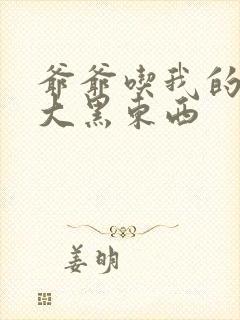 爷爷喫我的
大黑东西
姜明